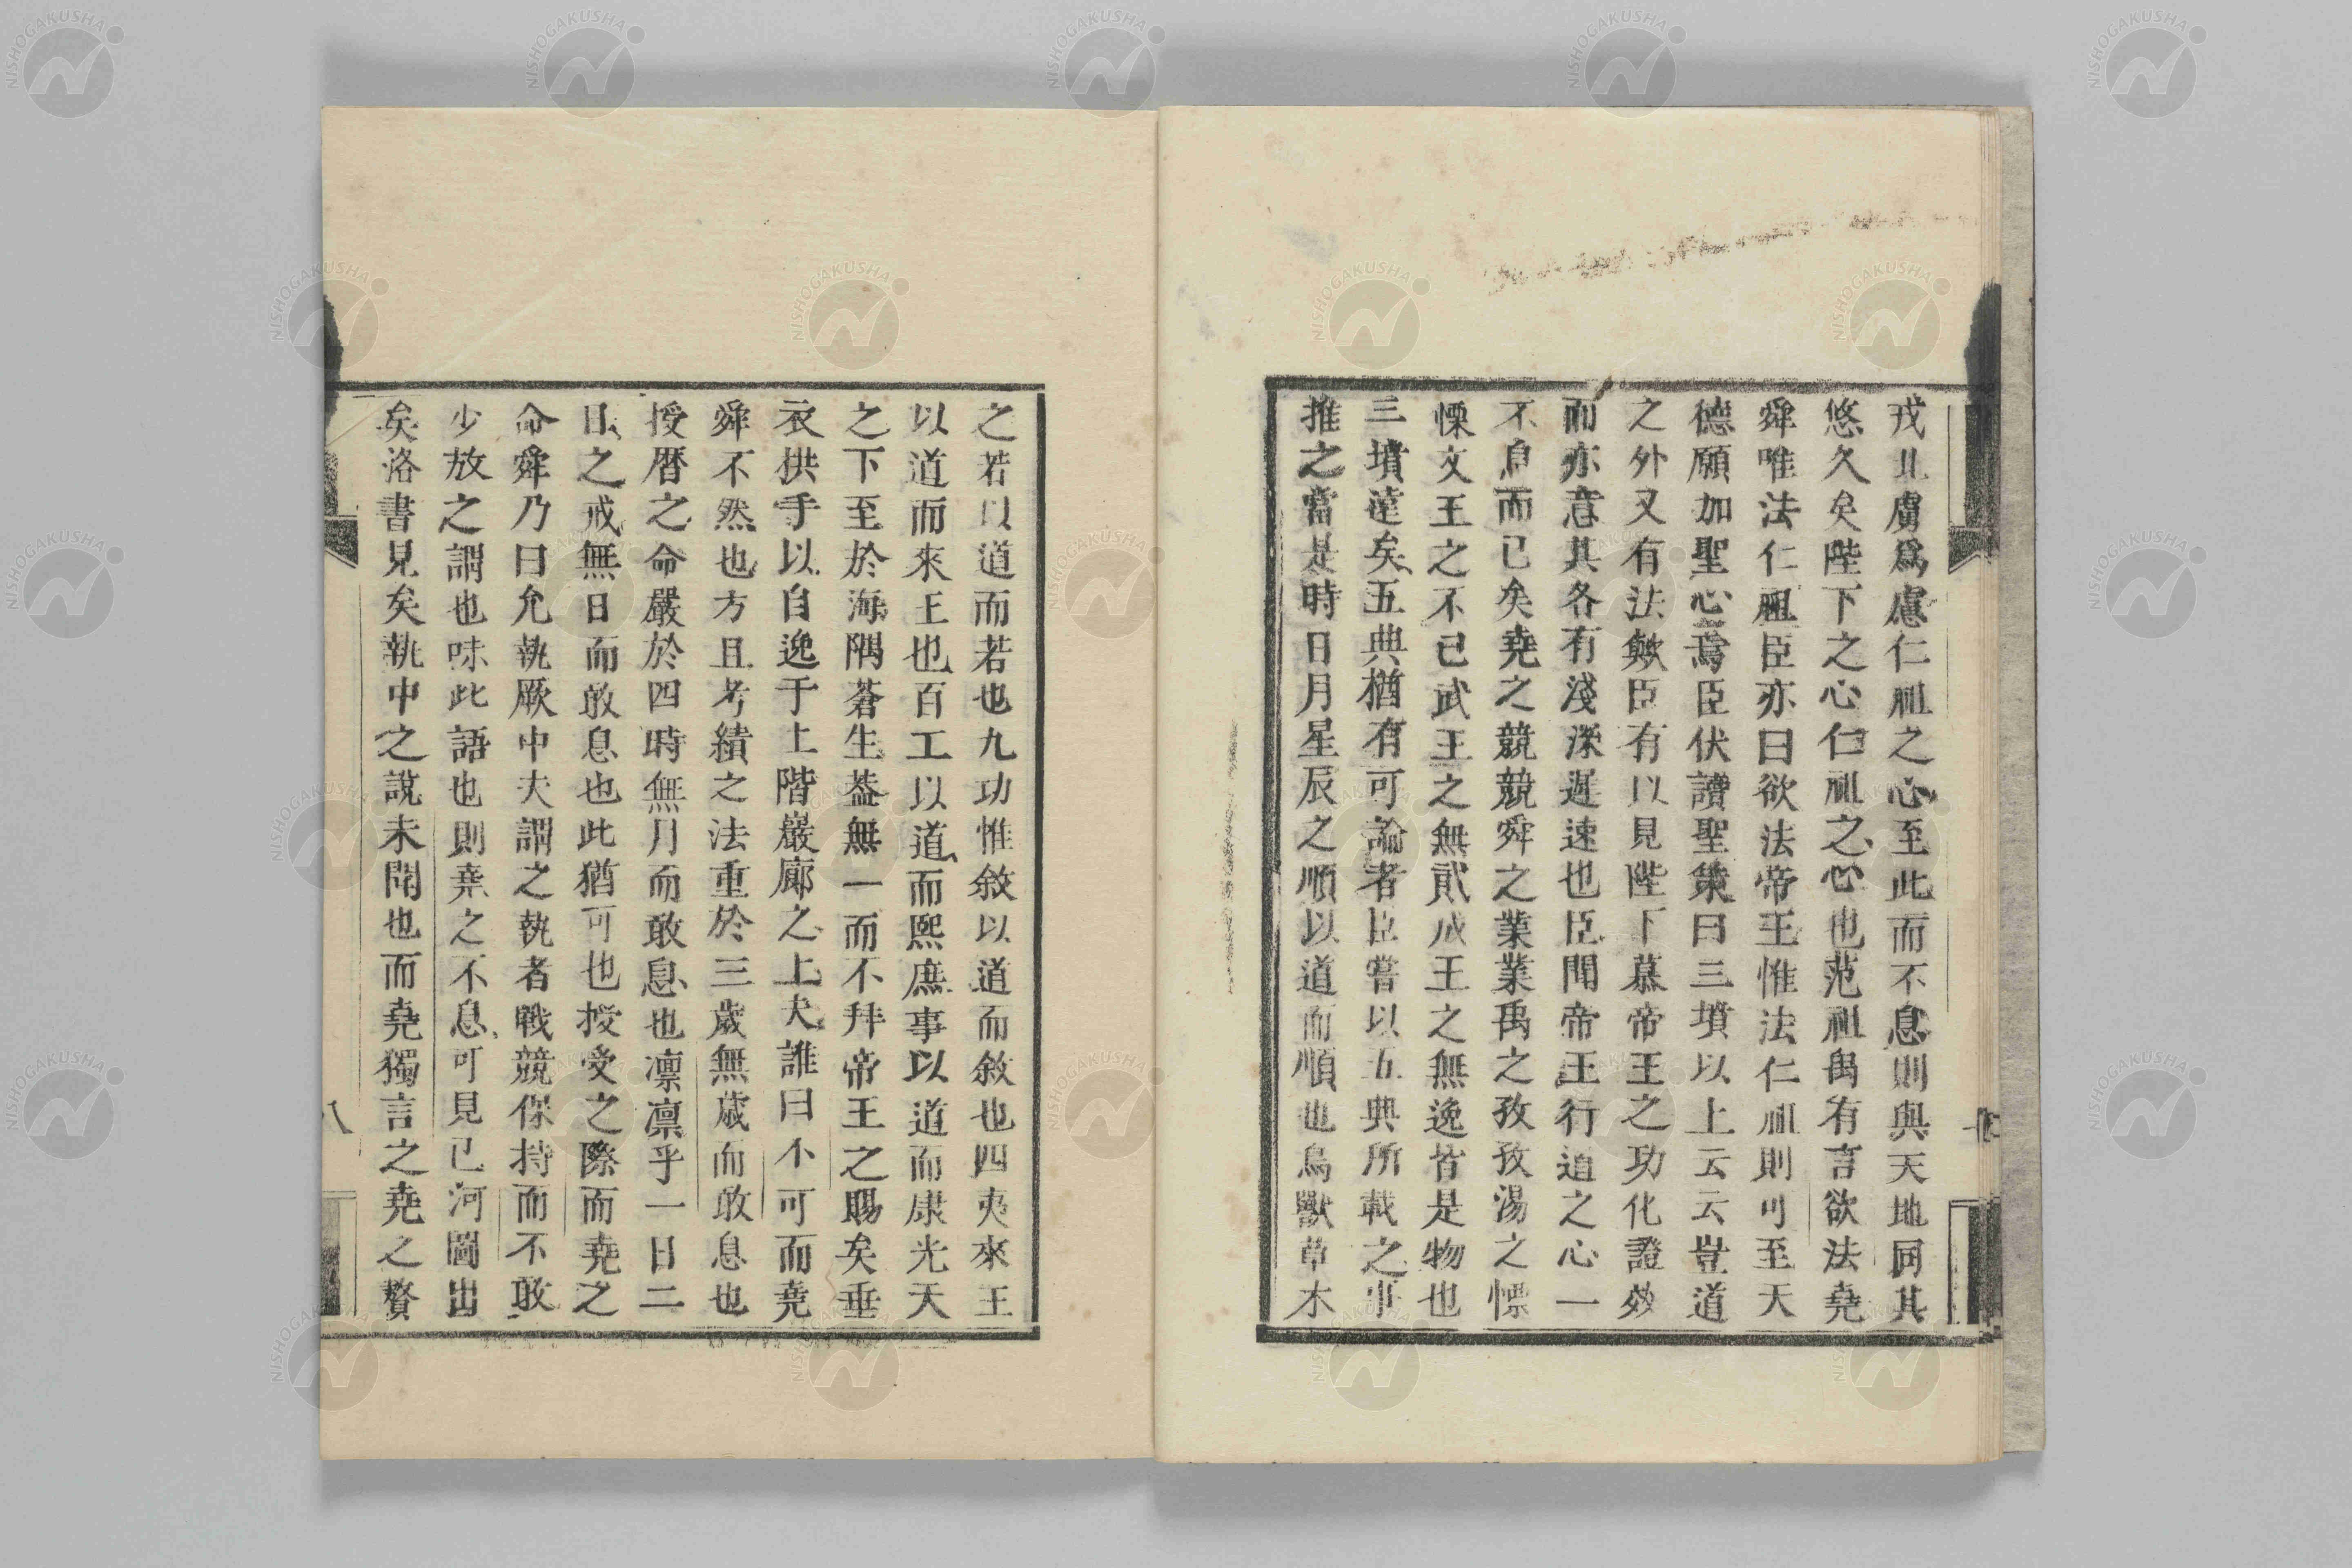 戎北虜爲慮仁祖之心至此而不息則與天地同其
悠久矣陛下之心仁祖之心也范祖禹有言欲法堯
舜唯法仁祖臣亦曰欲法帝王惟法仁祖則可至天
德願加聖心焉臣伏讀聖策曰三墳以上云云豈道
之外又有法歟臣有以見陛下慕帝王之功化證效
而亦意其各有淺深遲速也臣聞帝王行道之心一
不息而已矣堯之競競舜之業業禹之孜孜湯之慄
慄文王之不已武王之無貳成王之無逸皆是物也
三墳遠矣五典猶有可論者臣嘗以五典所載之事
推之當是時日月星辰之順以道而順也鳥獸草木
之若以道而若也九功惟敘以道而敘也四夷來王
以道而來王也百工以道而熙庶事以道而康光天
之下至於海隅蒼生蓋無一而不拜帝王之賜矣垂
衣拱手以自逸于土階巖廊之上夫誰曰不可而堯
舜不然也方且考績之法重於三歲無歲而敢息也
授曆之命嚴於四時無月而敢息也凛凛乎一日二
日之戒無日而敢息也此猶可也授受之際而堯之
命舜乃曰允執厥中夫謂之執者戰競保持而不敢
少放之謂也味此語也則堯之不息可見已河圖出
矣洛書見矣執中之說未聞也而堯獨言之堯之贅
八
NISHOGAKUSHA